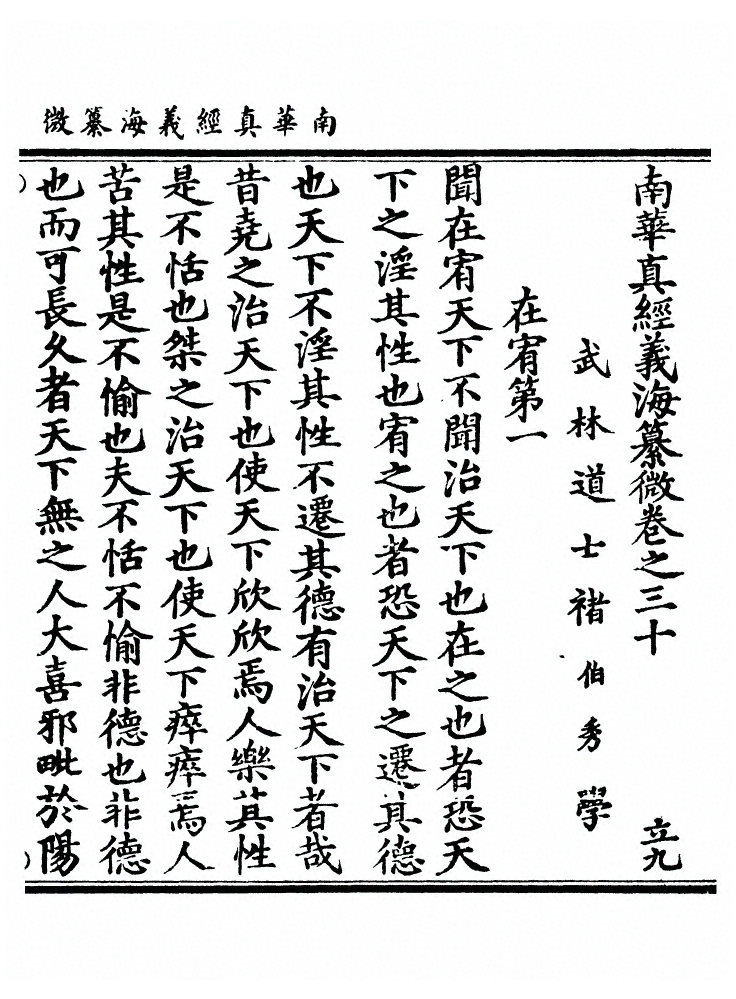 南華真經義海纂微
南華真經義海纂微卷之三十 立九
武林道士褚伯秀學
在宥第一
聞在宥天下不聞治天下也在之也者恐天
下之淫其性也宥之也者恐天下之遷其德
也天下不淫其性不遷其德有治天下者哉
昔堯之治天下也使天下欣欣焉人樂其性
是不恬也桀之治天下也使天下瘁瘁焉人
苦其性是不愉也夫不恬不愉非德也非德
也而可長久者天下無之人大喜邪毗於陽